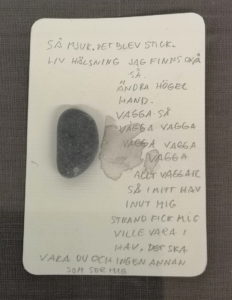 SÅ MJUK. DET BLEV STICK.
LIV HÄLSNING JAG FINNS OCKSÅ
SÅ.
ÄNDRA HÖGER
HAND.
VAGGA SÅ
VAGGA VAGGA
VAGGA VAGGA
VAGGA
ALLT VAGGAR
SÅ I MITT HAV
INUT MIG
STRAND FICK MIG
VILLE VARA I
HAV. DET SKA
VARA DU OCH INGEN ANNAN
SOM SER MIG